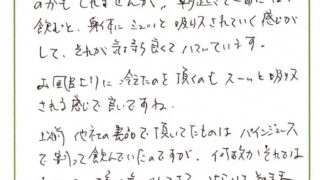 のかもしれませんが、朝起きて一番に
飲むと、身体にジューッと吸収されていく感じが
して、それが気持ち良くてハマっています。
お風呂上りに冷たいのを頂くのもスーッと吸収
される感じで良いですね。
以前 他社の製品で頂いてたものはパインジュース
で割って飲んでいたのですが、何故かそれでは